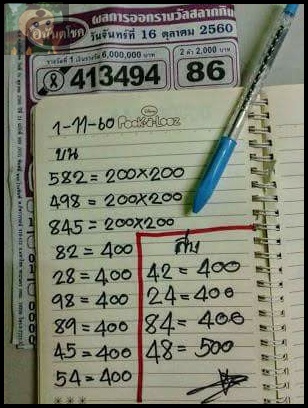 อั้มโตโชค
ผลการออกรางวัลสลากกิน
วันจันทร์ที่ 16 ตุลาคม 2560
รางวัลที่ 1 เงินรางวัล 6,000,000 บาท
2 ตัว 2,000 บาท
413494
86
1-11-60
บน
582 = 200x200
498 = 200x200
845 = 200x200
82 = 400
28 = 400
98 = 400
89 = 400
45 = 400
54 = 400
ล่าง
42 = 400
24 = 400
84 = 400
48 = 500